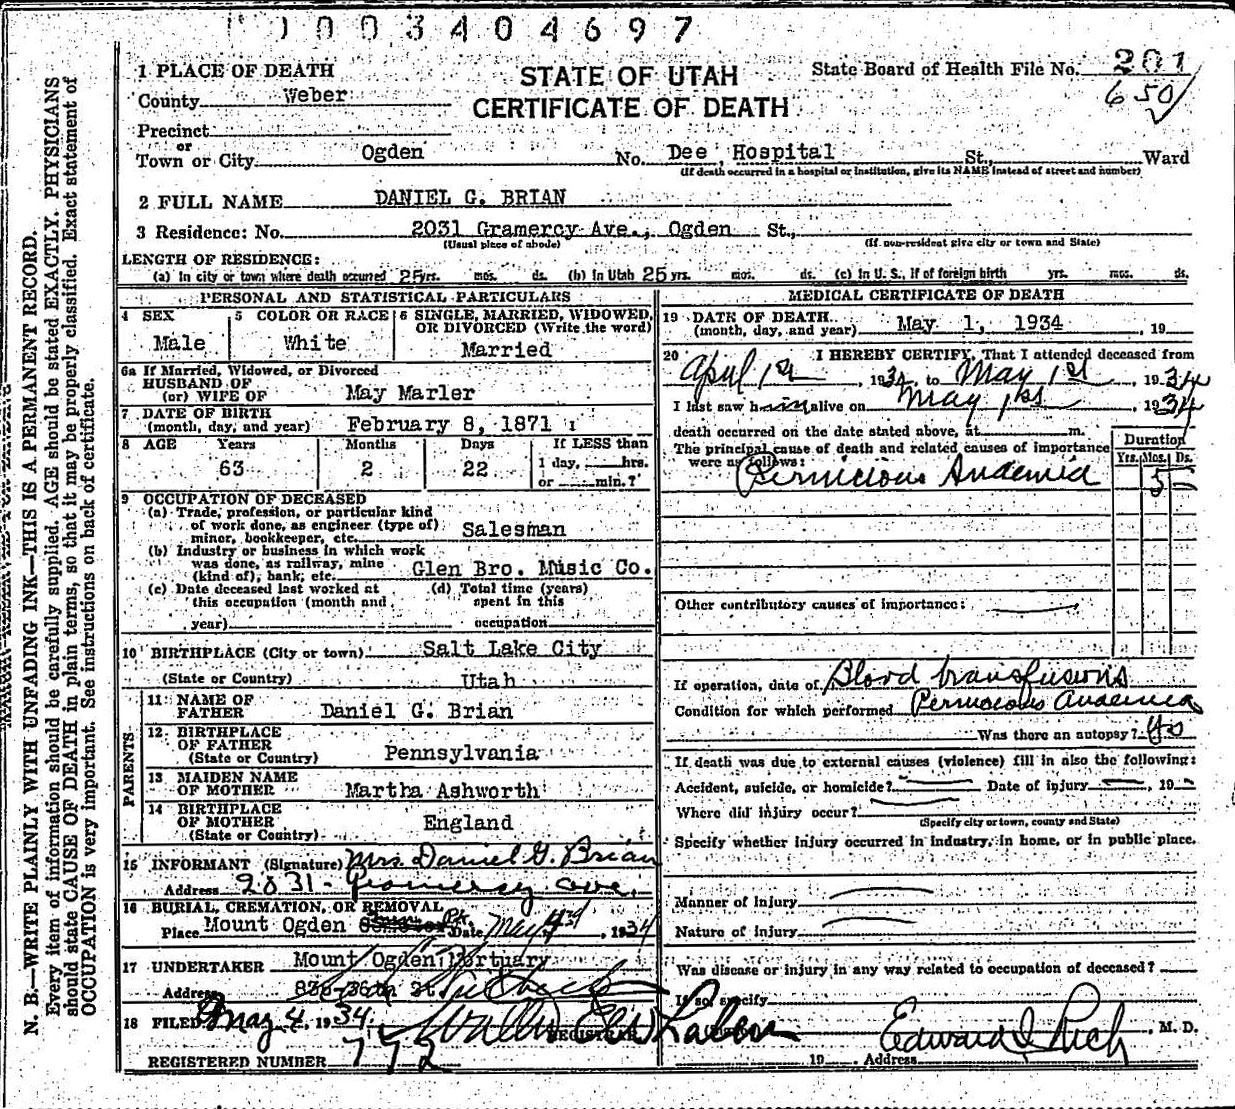 1003404697
1 PLACE OF DEATH
STATE OF UTAH
State Board of Health File No. 201
County Weber
CERTIFICATE OF DEATH
650
Precinct
or
Town or City Ogden No. Dee Hospital St., Ward
(If death occurred in a hospital or institution, give its NAME instead of street and number)
2 FULL NAME DANIEL G. BRIAN
3 Residence: No. 2031 Gramercy Ave., Ogden St.,
(Usual place of abode) (If non-resident give city or town and State)
LENGTH OF RESIDENCE:
(a) In city or town where death occurred 25 yrs. mos. ds. (b) In Utah 25 yrs. mos. ds. (c) In U. S., if of foreign birth yrs. mos. ds.
PERSONAL AND STATISTICAL PARTICULARS
4 SEX
Male
5 COLOR OR RACE
White
6 SINGLE, MARRIED, WIDOWED,
OR DIVORCED (Write the word)
Married
6a If Married, Widowed, or Divorced
HUSBAND OF
(or) WIFE OF May Marler
7 DATE OF BIRTH
(month, day, and year) February 8, 1871
8 AGE Years Months Days If LESS than
63 2 22 1 day, hrs.
or min.?
9 OCCUPATION OF DECEASED
(a) Trade, profession, or particular kind
of work done, as engineer (type of)
miner, bookkeeper, etc. Salesman
(b) Industry or business in which work
was done, as railway, mine
(kind of), bank, etc. Glen Bro. Music Co.
(c) Date deceased last worked at (d) Total time (years)
this occupation (month and spent in this
year) occupation
10 BIRTHPLACE (City or town) Salt Lake City
(State or Country) Utah
PARENTS
11 NAME OF
FATHER Daniel G. Brian
12. BIRTHPLACE
OF FATHER
(State or Country) Pennsylvania
13. MAIDEN NAME
OF MOTHER Martha Ashworth
14 BIRTHPLACE
OF MOTHER
(State or Country) England
15 INFORMANT (Signature) Mrs. Daniel G. Brian
Address 2031 - Gramercy ave.
16 BURIAL, CREMATION, OR REMOVAL
Place Mount Ogden Pk. Date May 4, 1934
17 UNDERTAKER Mount Ogden Mortuary
Address
18 FILED May 4, 1934
REGISTRAR
REGISTERED NUMBER 172
MEDICAL CERTIFICATE OF DEATH
19 DATE OF DEATH
(month, day, and year) May 1, 1934, 19
20 I HEREBY CERTIFY, That I attended deceased from
April 1st, 1934, to May 1st, 1934
I last saw him alive on May 1st, 1934
death occurred on the date stated above, at m.
The principal cause of death and related causes of importance
were as follows:
Duration
Yrs. Mos. Ds.
Pernicious Anaemia 5
Other contributory causes of importance:
If operation, date of Blood transfusions
Condition for which performed Pernicious Anaemia
Was there an autopsy? Yes
If death was due to external causes (violence) fill in also the following:
Accident, suicide, or homicide? Date of injury, 19
Where did injury occur?
(Specify city or town, county and State)
Specify whether injury occurred in industry, in home, or in public place.
Manner of Injury
Nature of Injury
Was disease or injury in any way related to occupation of deceased?
If so, specify
Edward I Rich, M. D.
19 Address
N. B.—WRITE PLAINLY WITH UNFADING INK—THIS IS A PERMANENT RECORD.
Every item of information should be carefully supplied. AGE should be stated EXACTLY. PHYSICIANS
should state CAUSE OF DEATH in plain terms, so that it may be properly classified. Exact statement of
OCCUPATION is very important. See instructions on back of certificate.